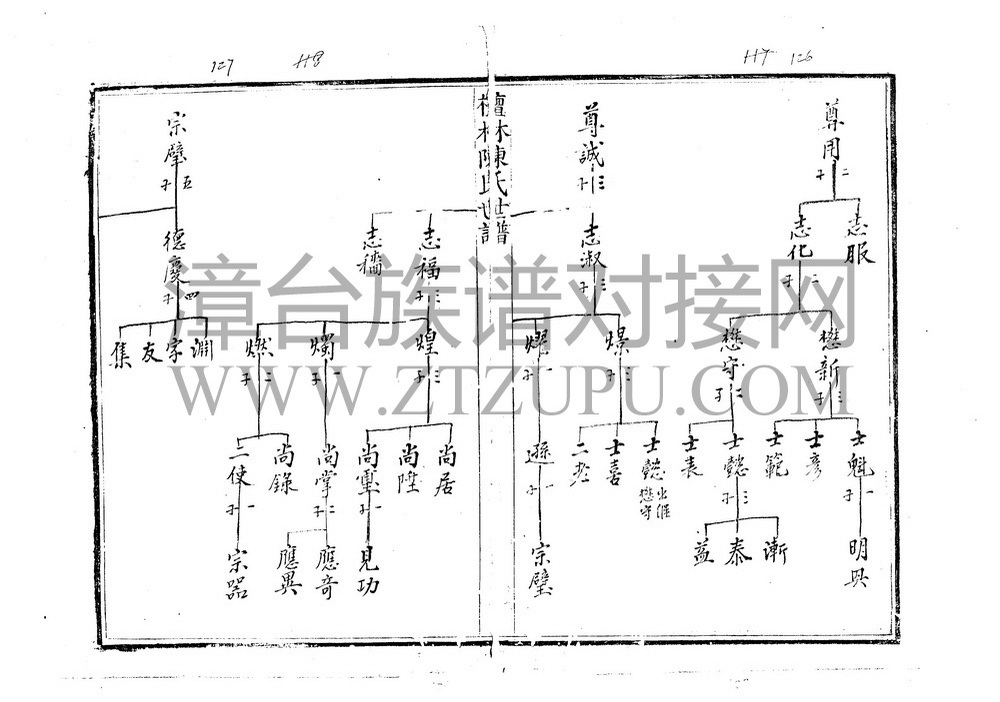 127
H8
H7 126
檀林陳氏世譜
尊用
二子
志服
志化
二子
懋新
三子
懋守
二子
士魁
一子
士彥
士範
士懿
三子
士表
明興
漸
泰
益
尊誠
三子
志淑
三子
㷡
三子
燿
一子
士懿 出繼懋守
士喜
二老
遜
一子
宗璧
志福
三子
志穡
煌
三子
燭
一子
燃
二子
尚居
尚陞
尚璽
一子
尚掌
二子
尚錄
三使
一子
見功
應奇
應異
宗器
宗璧
五子
德慶
四子
淵
字
友
集
漳台族谱对接网
WWW.ZTZUPU.COM